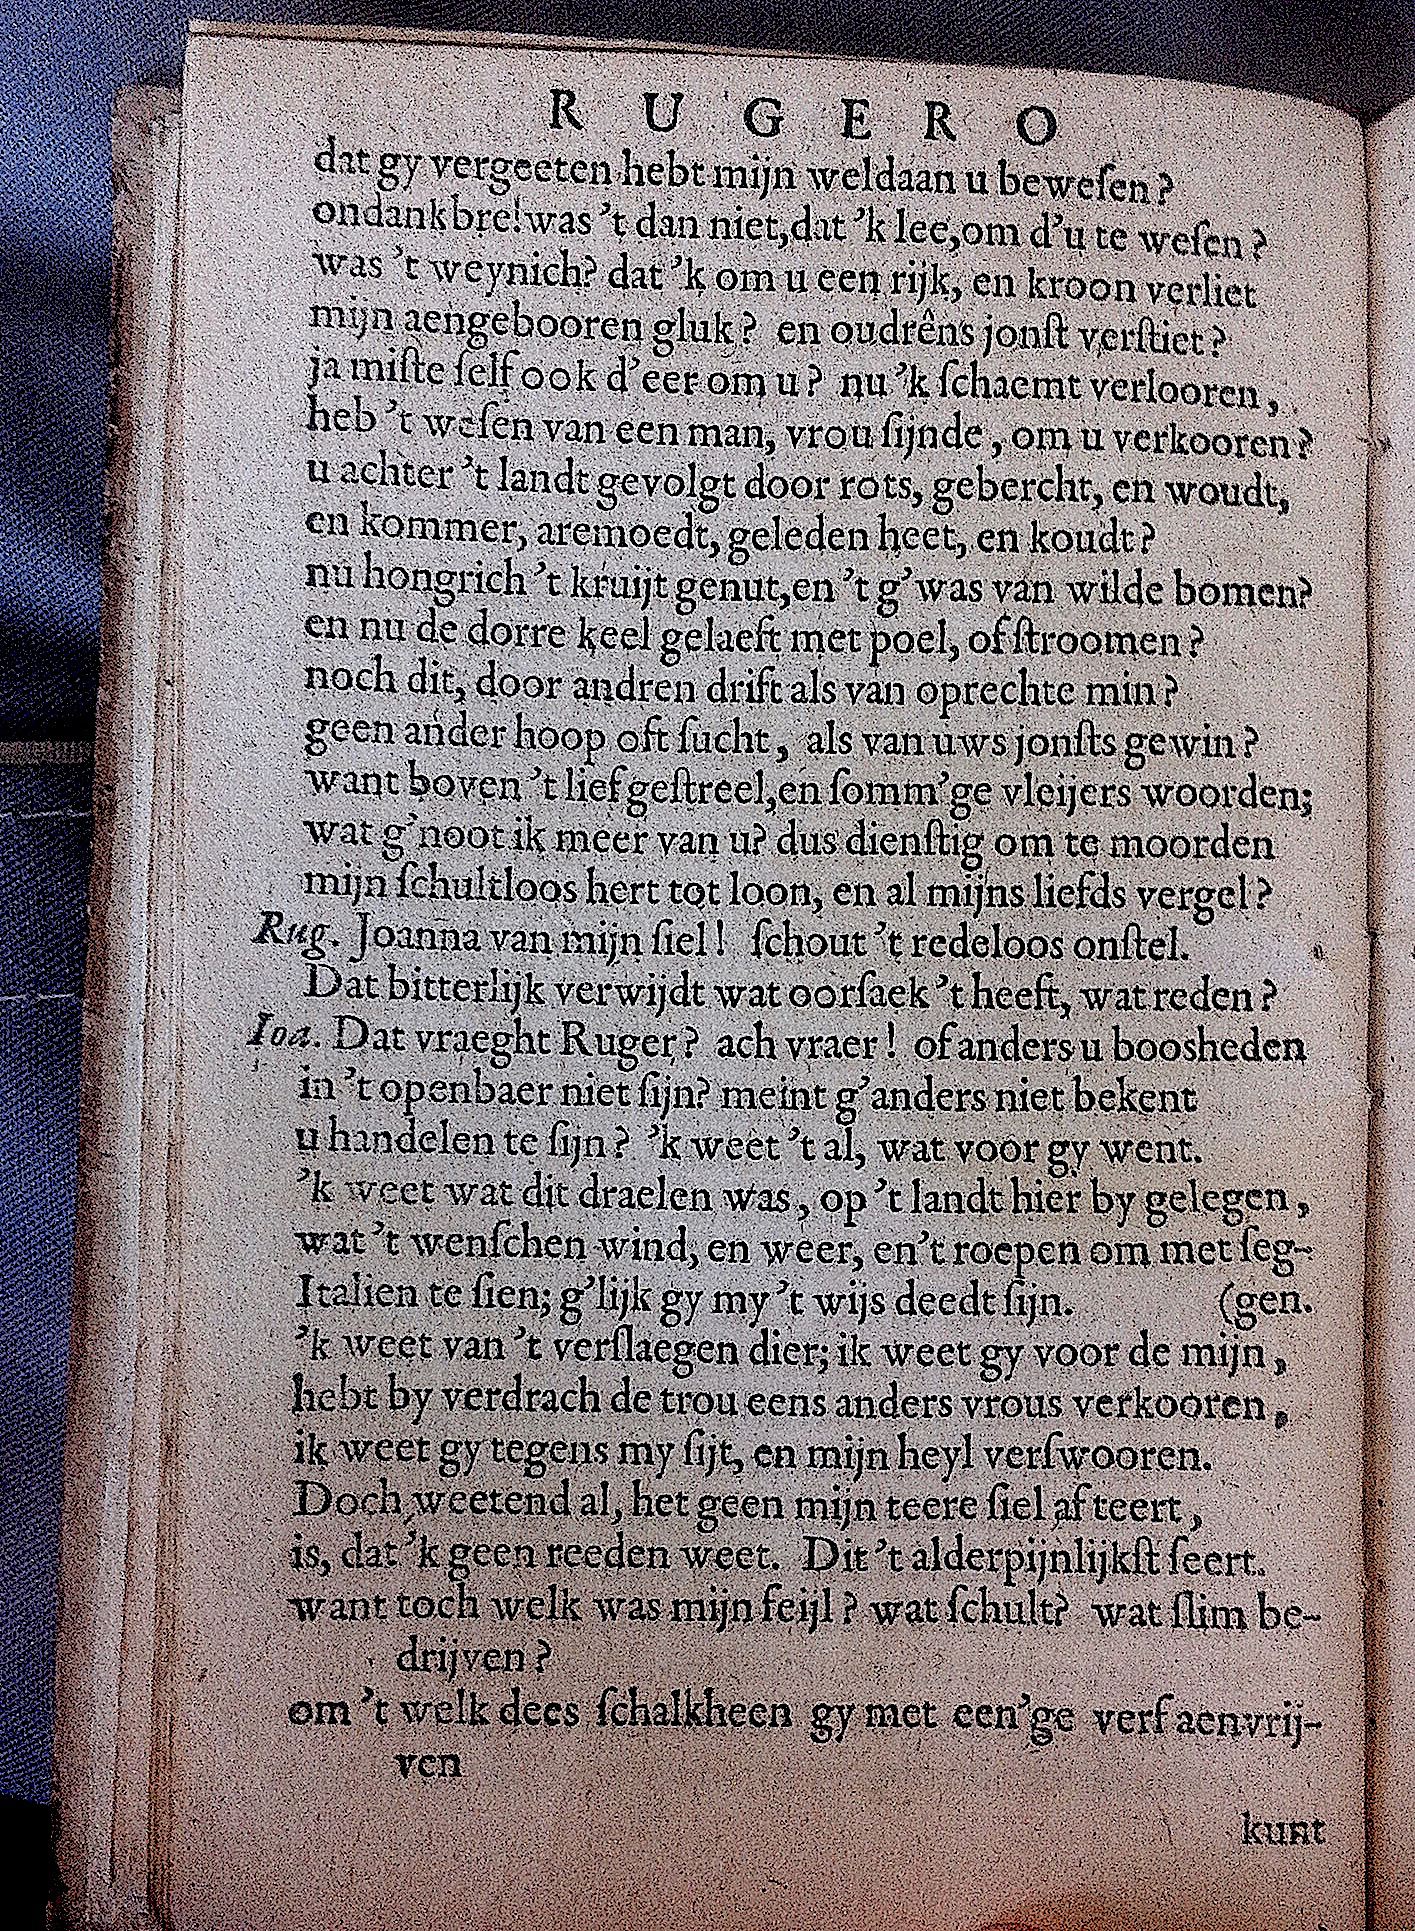 R U G E R O
dat gy vergeeten hebt mijn weldaan u beweſen?
ondankbre! was 't dan niet, dat 'k lee, om d'u te weſen?
was 't weynich? dat 'k om u een rijk, en kroon verliet
mijn aengebooren gluk? en oudrêns jonſt verſtiet?
ja miſte ſelf ook d'eer om u? nu 'k ſchaemt verlooren,
heb 't weſen van een man, vrou ſijnde, om u verkooren?
u achter 't landt gevolgt door rots, gebercht, en woudt,
en kommer, aremoedt, geleden heet, en koudt?
nu hongrich 't kruijt genut, en 't g'was van wilde bomen?
en nu de dorre keel gelaeft met poel, of ſtroomen?
noch dit, door andren drift als van oprechte min?
geen ander hoop oft ſucht, als van uws jonſts gewin?
want boven 't lief geſtreel, en ſomm'ge vleijers woorden;
wat g'noot ik meer van u? dus dienſtig om te moorden
mijn ſchultloos hert tot loon, en al mijns liefds vergel?
Rug. Joanna van mijn ſiel! ſchout 't redeloos onſtel.
Dat bitterlijk verwijdt wat oorſaek 't heeft, wat reden?
Ioa. Dat vraeght Ruger? ach vraer! of anders u boosheden
in 't openbaer niet ſijn? meint g'anders niet bekent
u handelen te ſijn? 'k weet 't al, wat voor gy went.
'k weet wat dit draelen was, op 't landt hier by gelegen,
wat 't wenſchen wind, en weer, en 't roepen om met ſeg-
Italien te ſien; g'lijk gy my 't wijs deedt ſijn. (gen.
'k weet van 't verſlaegen dier; ik weet gy voor de mijn,
hebt by verdrach de trou eens anders vrous verkooren,
ik weet gy tegens my ſijt, en mijn heyl verſwooren.
Doch weetend al, het geen mijn teere ſiel af teert,
is, dat 'k geen reeden weet. Dit 't alderpijnlijkſt ſeert.
want toch welk was mijn feijl? wat ſchult? wat ſlim be-
drijven?
om 't welk dees ſchalkheen gy met een'ge verf aenvrij-
ven
kunt